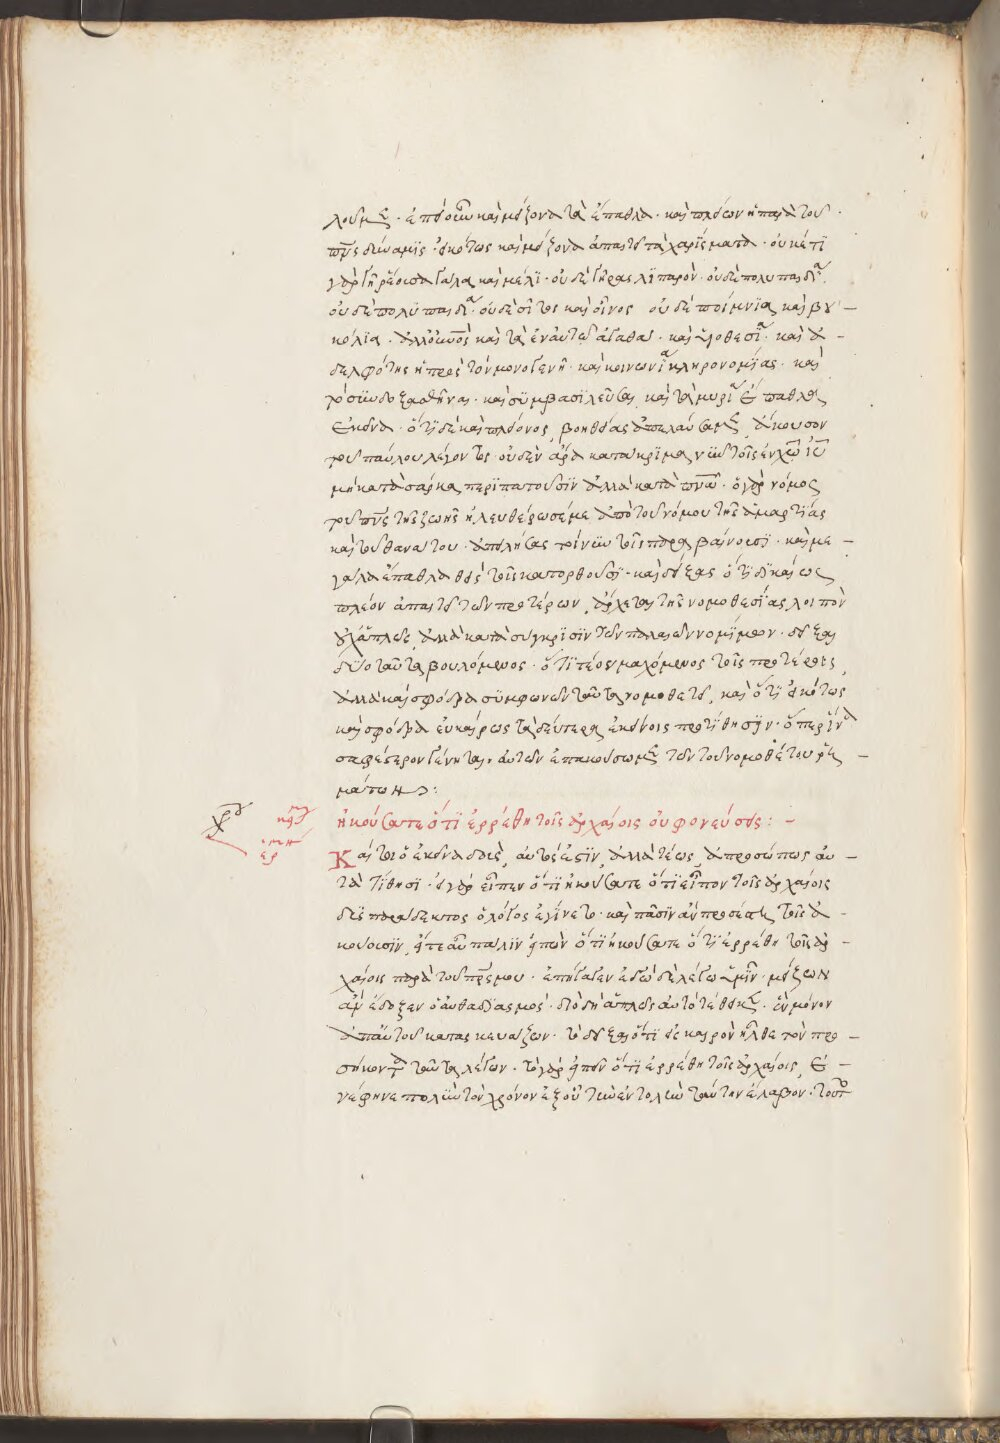 λουμεν· ἐπεὶ οὖν καὶ μείζονα τὰ ἔπαθλα· καὶ πλείων ἡ παρὰ τοῦ
πνς δύναμις· εἰκότως καὶ μείζονα ἀπαιτεῖ τὰ χαρίσματα· οὐκέτι
γὰρ γῆ ῥέουσα γάλα καὶ μέλι· οὐδὲ γῆρας λιπαρὸν· οὐδὲ πολυπαιδία
οὐδὲ πολυπαιδία· οὐδὲ σῖτος καὶ οἶνος οὐδὲ ποίμνια καὶ βου
κόλια· ἀλλ' οὐνὸς καὶ τὰ ἐν αὐτῶ ἀγαθὰ· καὶ υἱοθεσία· καὶ ἀ
δελφότης ἡ πρὸς τὸν μονογενῆ· καὶ κοινωνία κληρονομίας· καὶ
τὸ συνδοξασθῆναι· καὶ συμβασιλεῦσαι, καὶ τὰ μυρία ἔπαθλα
ἐκεῖνα· ὅτι δὲ καὶ πλείονος βοηθείας ἀπελαύσαμεν, ἄκουσον
τοῦ παύλου λέγοντος· οὐδὲν ἄρα κατάκριμα νῦν τοῖς ἐν χω ιυ
μὴ κατὰ σάρκα περιπατοῦσιν ἀλλὰ κατὰ πνα· ὁ γὰρ νόμος
τοῦ πνς τῆς ζωῆς ἠλευθέρωσέ με ἀπὸ τοῦ νόμου τῆς ἁμαρτίας
καὶ τοῦ θανάτου· ἀπειλήσας τοίνυν τοῖς παραβαίνουσι· καὶ με
γάλα ἔπαθλα θεὶς τοῖς κατορθοῦσι· καὶ δείξας ὅτι δικαίως
πλέον ἀπαιτεῖ τῶν προτέρων, ἄρχεται τῆς νομοθεσίας λοιπὸν
οὐχ ἁπλῶς, ἀλλὰ κατὰ σύγκρισιν τῶν παλαιῶν νομίμων· δεῖξαι
δύο ταῦτα βουλόμενος· ὅτι τε οὐ μαχόμενος τοῖς προτέροις,
ἀλλὰ καὶ σφόδρα συμφωνῶν ταῦτα νομοθετεῖ, καὶ ὅτι εἰκότως
καὶ σφόδρα εὐκαίρως τὰ δεύτερα ἐκείνοις προτίθησιν· ὅπερ ἵνα
σαφέστερον γένηται, αὐτῶν ἐπακούσωμεν τῶν τοῦ νομοθέτου ῥη
μάτων:
ἠκούσατε ὅτι ἐρρέθη τοῖς ἀρχαίοις οὐ φονεύσεις:
Καίτοι ὁ ἐκεῖνα δοὺς, αὐτός ἐστιν, ἀλλὰ τέως, ἀπροσώπως αὐ
τὰ τίθησι· εἰ γὰρ εἶπεν ὅτι ἠκούσατε ὅτι εἶπον τοῖς ἀρχαίοις
δυσπαράδεκτος ὁ λόγος ἐγίνετο· καὶ πᾶσιν ἂν προσέστη τοῖς ἀ
κούουσιν, εἴτε αὖ πάλιν εἰπὼν ὅτι ἠκούσατε ὅτι ἐρρέθη τοῖς ἀρ
χαίοις παρὰ τοῦ πρς μου· ἐπήγαγεν ἐγὼ δὲ λέγω ὑμῖν· μείζων
ἂν ἔδοξεν ὁ αὐθαδιασμός· διὸ δὴ ἁπλῶς αὐτὸ τέθεικεν· ἓν μόνον
ἀπ' αὐτοῦ κατασκευάζων· τὸ δεῖξαι ὅτι εἰς καιρὸν ἦλθε τὸν προ
σήκοντα ταῦτα λέγων· τὸ γὰρ εἰπεῖν ὅτι ἐρρέθη τοῖς ἀρχαίοις, ἐ
νέφηνε πολὺν τὸν χρόνον ἐξ οὗ τὴν ἐντολὴν ταύτην ἔλαβον· τοῦτο